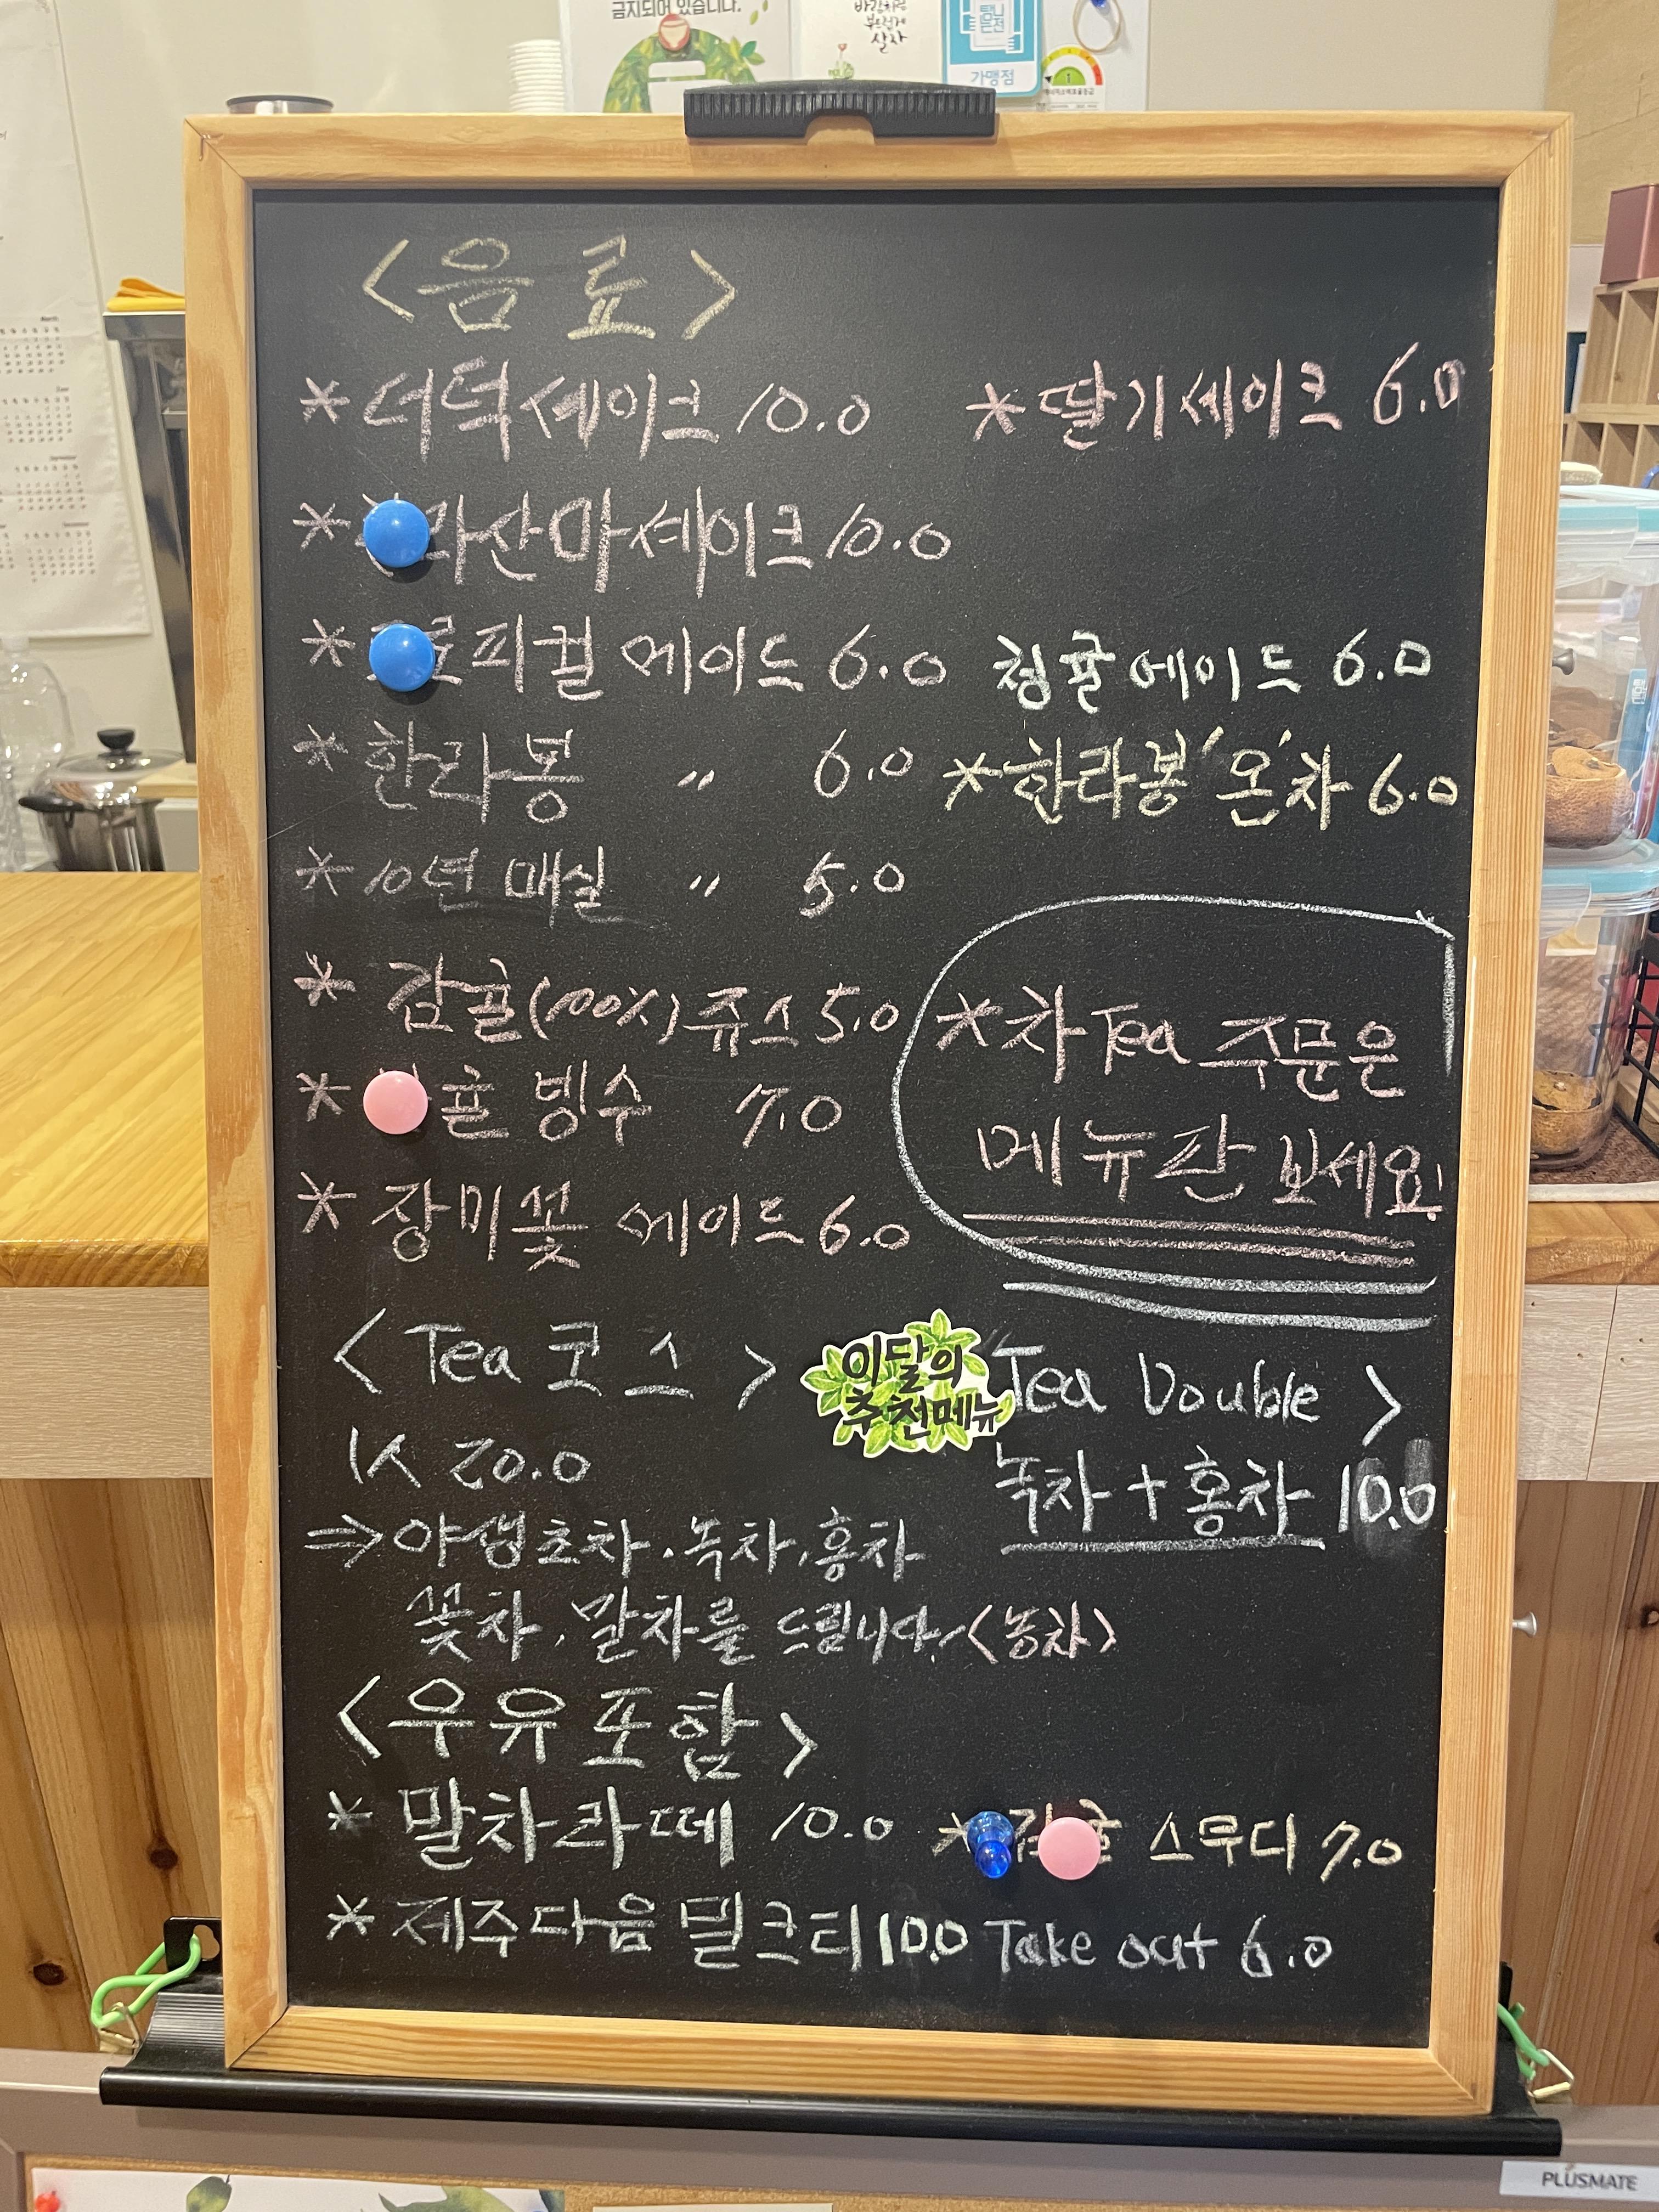 금지되어 있습니다.
바람처럼
부드럽게
살자
가맹점
<음료>
*더덕세이크 10.0 *딸기세이크 6.0
*라산마세이크 10.0
*로피컬 에이드 6.0 청귤에이드 6.0
*한라봉 〃 6.0 *한라봉'온'차 6.0
*10년 매실 〃 5.0
*감귤(100%)쥬스 5.0
*귤 빙수 7.0
*장미꽃 에이드 6.0
*차Tea 주문은
메뉴판 보세요!
<Tea 코스>
1人 20.0
⇒야생초차.녹차.홍차
꽃차.말차를 드립니다.<농차>
이달의
추천메뉴
Tea Double>
녹차+홍차 10.0
<우유포함>
*말차라떼 10.0 *감귤 스무디 7.0
*제주다음 밀크티 10.0 Take out 6.0
PLUSMATE